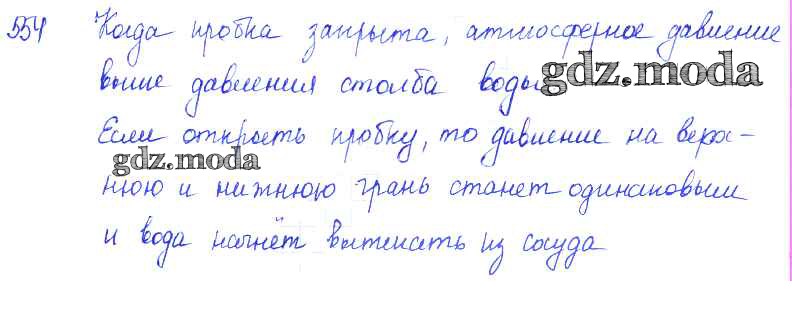 554 Когда пробка закрыта, атмосферное давление
выше давления столба воды
gdz.moda
Если открыть пробку, то давление на верх-
gdz.moda
нюю и нижнюю грань станет одинаковым
и вода начнёт вытекать из сосуда